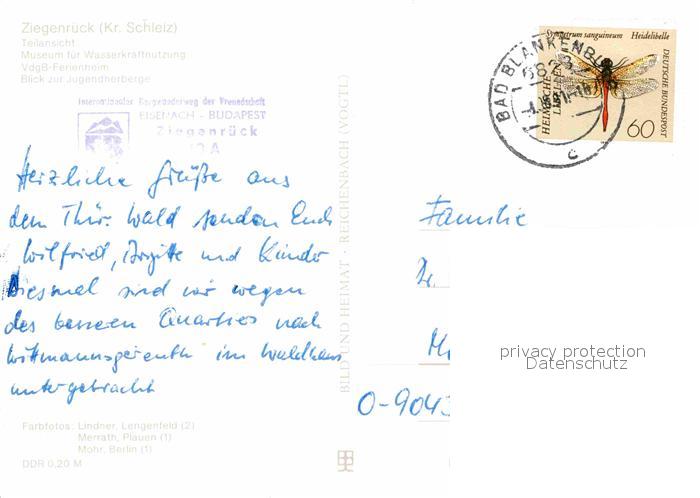 Ziegenrück (Kr. Schleiz)
Teilansicht
Museum für Wasserkraftnutzung
VdgB-Ferienheim
Blick zur Jugendherberge
Internationaler Bergwanderweg der Freundschaft
EISENACH - BUDAPEST
Ziegenrück
Herzliche Grüße aus
dem Thür. Wald senden Euch
Wilfried, Brigitte und Kinder
Diesmal sind wir wegen
des besseren Quartiers nach
Wittmannsgereuth im Waldhaus
untergebracht
Farbfotos: Lindner, Lengenfeld (2)
Merrath, Plauen (1)
Mohr, Berlin (1)
DDR 0,20 M
BILD UND HEIMAT · REICHENBACH (VOGTL)
BAD BLANKENBURG
6823
c
Sympetrum sanguineum Heidelibelle
HEIMISCHE LIBELLEN
DEUTSCHE BUNDESPOST
60
Familie
Dr.
O-9043
privacy protection
Datenschutz